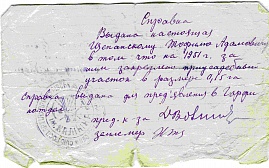 Справка
Выдана настоящая
Щепанскому Теофилю Адамовичу
в том что на 1951 г. за
ним закреплен приусадебный
участок в размере 0,15 га
справка выдана для предъявления в
пред. к-за
землемер